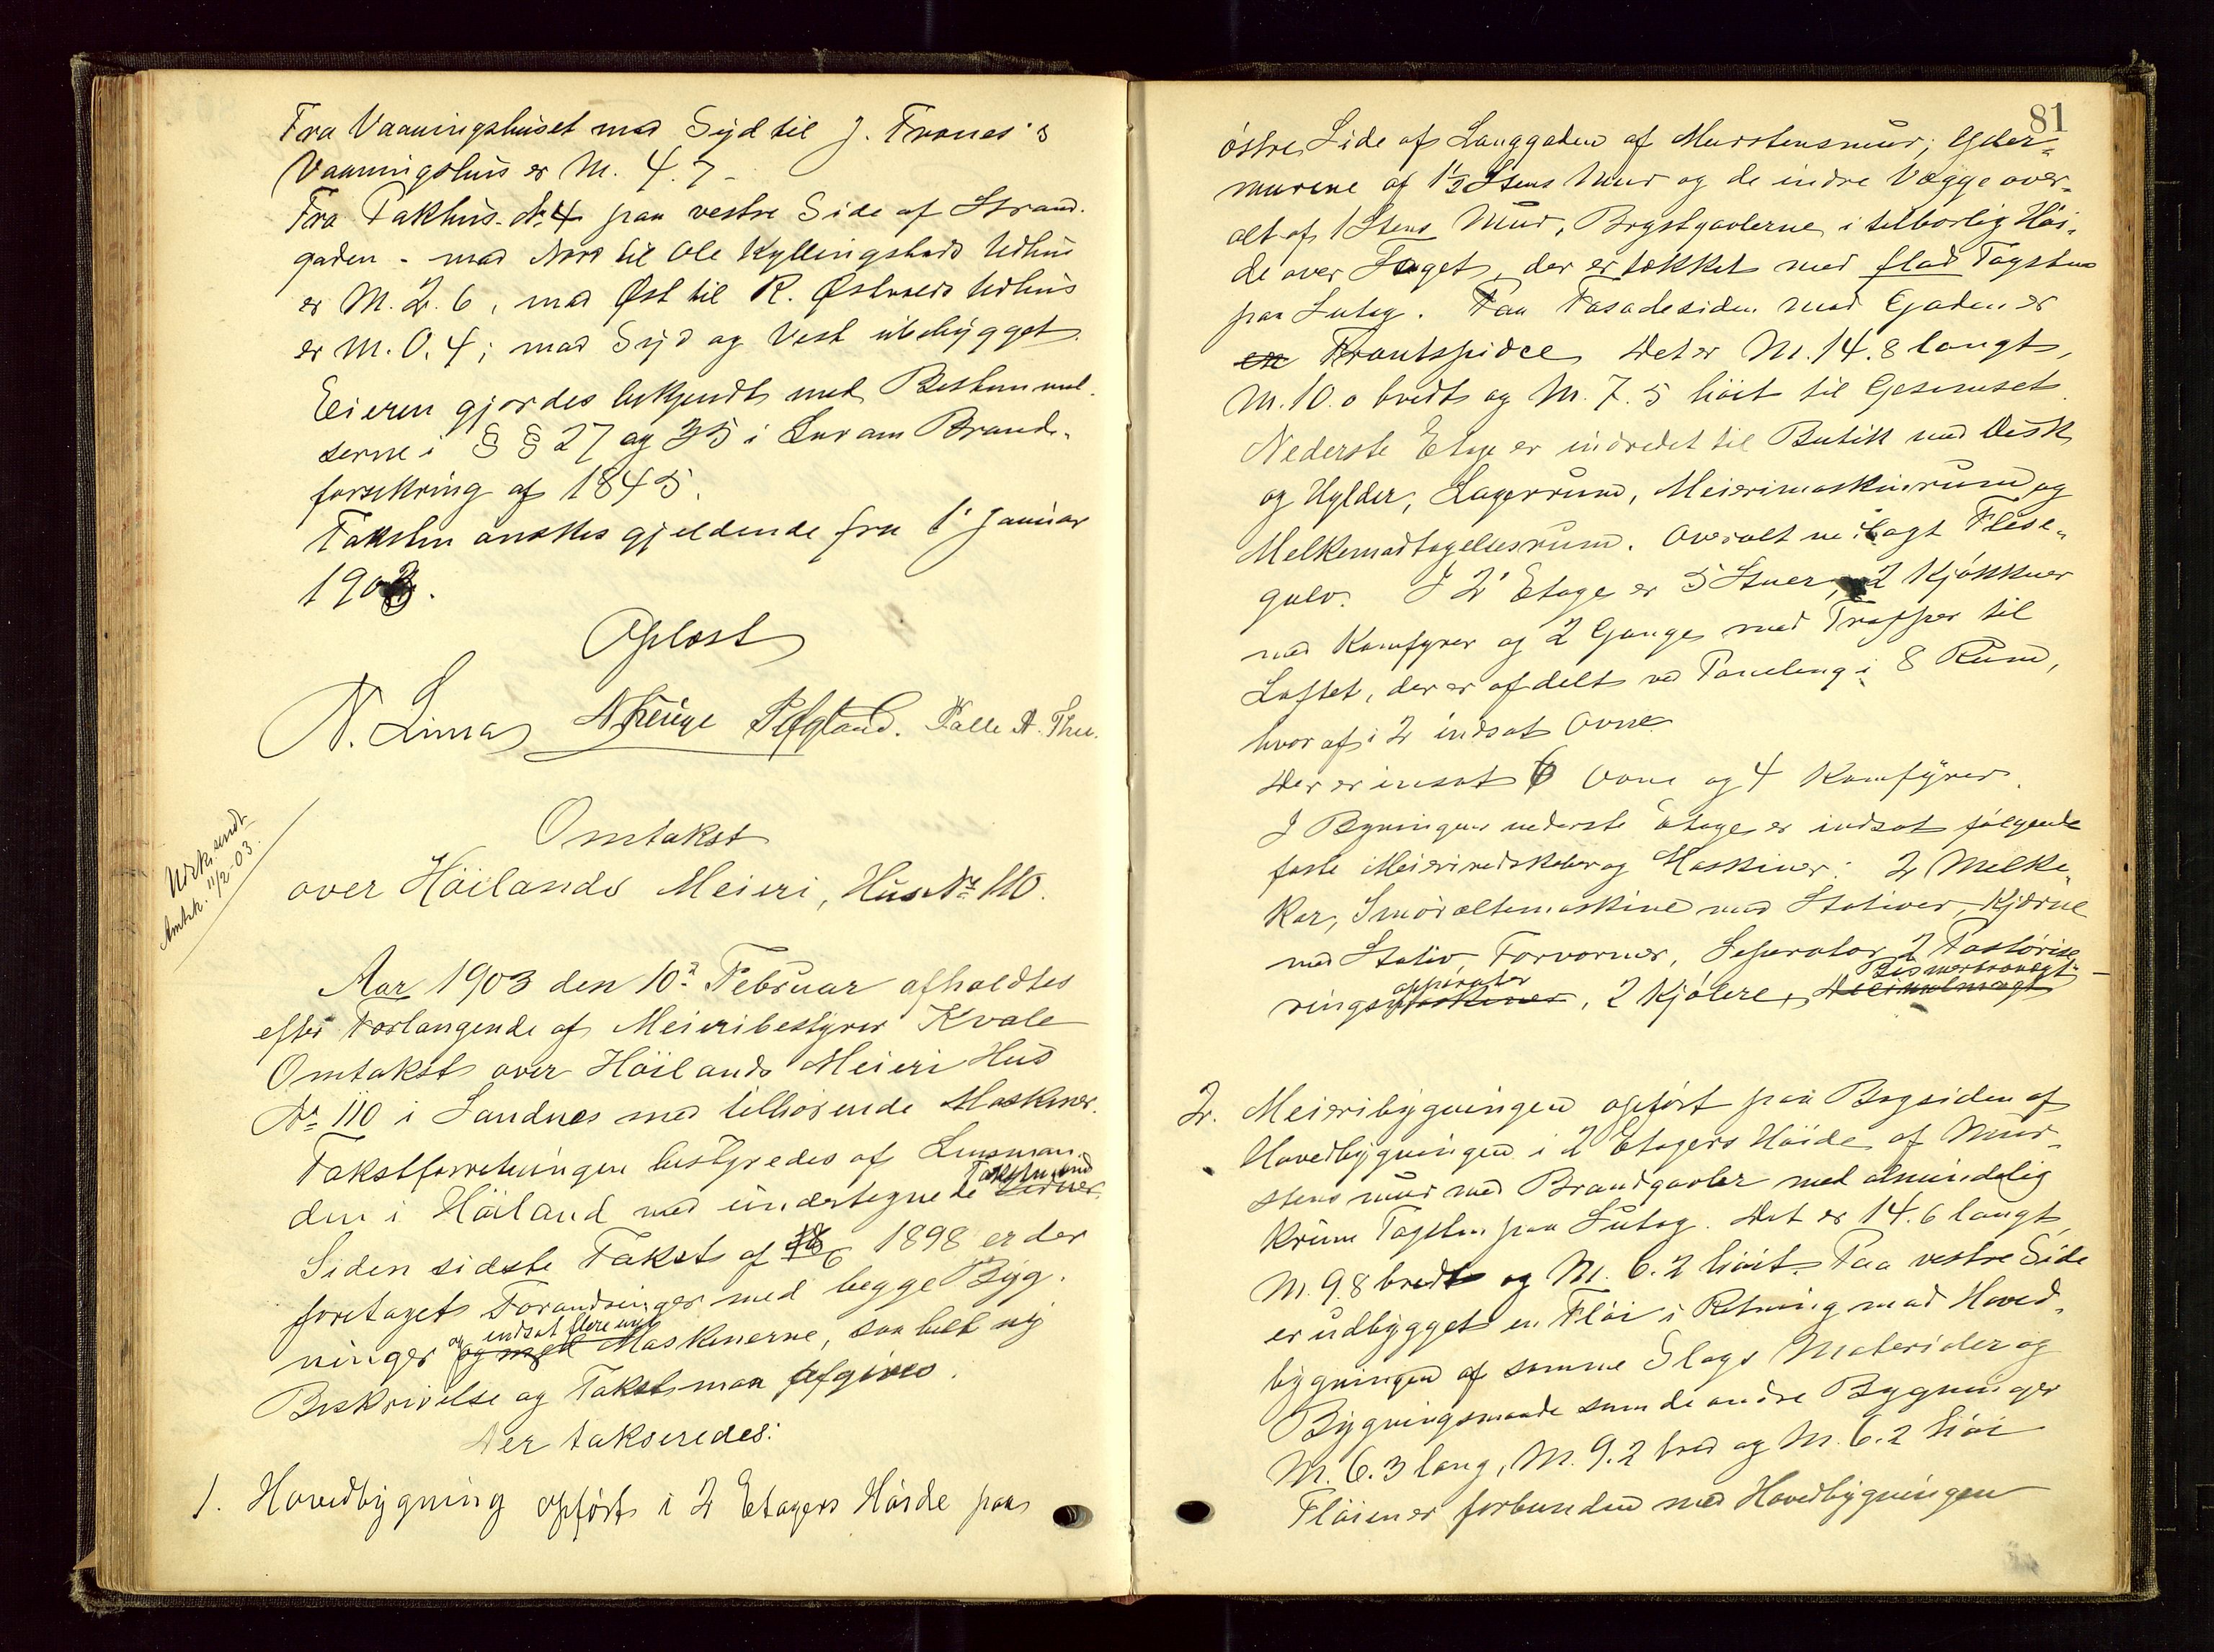 Fra Vaaningshuset mod Syd til J. Trones's
Vaaningshus er M. 4.7 -
Fra Pakhus № 4 paa vestre Side af Strand-
gaden - mod Nord til Ole Kyllingstads Udhus
er M. 2.6, mod Øst til R. Østraads Udhus
er M. 0.4; mod Syd og Vest ubebygget.
Eieren gjordes bekjendt med Bestemmel-
serne i § § 27 og 35 i Lov om Brand-
forsikring af 1845.
Taksten ønskes gjeldende fra 1' Januar
1903.
Oplæst
N. Lima Palle A. Thu.
Udsk. sendt
Amtsk. 11/2-03.
Omtakst
over Höilands Meieri, Hus № 110.
Aar 1903 den 10de Februar afholdtes
efter Forlangende af Meieribestyrer Kvale
Omtakst over Höilands Meieri Hus
№ 110 i Sandnes med tilhörende Maskiner.
Takstforretningen bestyredes af Lensman-
den i Höiland med undertegnede Takstmænd
Siden sidste Takst af 18/6 1898 er der
foretaget Forandringer med begge Byg-
ninger og indsat flere nye Maskinerne, saa helt ny
Beskrivelse og Takst maa afgives.
Der takseredes:
1. Hovedbygning opfört i 2 Etagers Höide paa
81
östre Side af Langgaden af Murstensmur; Yder-
murene af 1½ Stens Mur og de indre Vægge over-
alt af 1 Stens Mur, Brystgavlerne i tilbørlig Höi-
de over Taget, der er tækket med flad Tagsten
paa Sutag. Paa Fasadesiden mod Gaden er
en Frontspidce. Det er M. 14.8 langt,
M. 10.0 bredt og M. 7.5 höit til Gesimset.
Nederste Etage er indredet til Butik med Disk
og Hylder, Lagerrum, Meierimaskinrum og
Melkemodtagelsesrum. Overalt nedlagt Flise-
gulv. I 2' Etage er 5 Stuer, 2 Kjökkner
med Komfyrer og 2 Gange med Trapper til
Loftet, der er afdelt ved Paneling i 8 Rum,
hvoraf i 2 indsat Ovne.
Der er insat 6 Ovne og 4 Komfyrer.
I Bygningens nederste Etage er indsat fölgende
faste Meieriredskaber og Maskiner: 2 Melke-
kar, Smöræltemaskine med Stativer, Kjærne
med Stativ Forvarmer, Separator, 2 Pastörise-
ringsapparater, 2 Kjölere, Bismerbrovegt -
2. Meieribygningen opfört paa Bagsiden af
Hovedbygningen i 2 Etagers Höide af Mur-
stens mur med Brandgavler med almindelig
krum Tagsten paa Sutag. Det er 14.6 langt,
M. 9.8 bredt og M. 6.2 höit. Paa vestre Side
er udbygget en Flöi i Retning mod Hoved-
bygningen af samme Slags Materialer og
Bygningsmaade som de andre Bygninger
M. 6.3 lang, M. 9.2 bred og M. 6.2 höi
Flöien er forbunden med Hovedbygningen